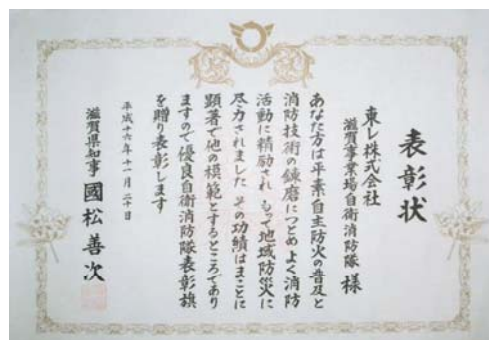 表彰状
東レ株式会社
滋賀事業場自衛消防隊 様
あなた方は平素自主防火の普及と
消防技術の錬磨につとめよく消防
活動に精励されもって地域防災に
尽力されました その功績はまことに
顕著で他の模範とするところであり
ますので優良自衛消防隊表彰旗
を贈り表彰します
平成十六年十一月二十日
滋賀県知事 國松善次